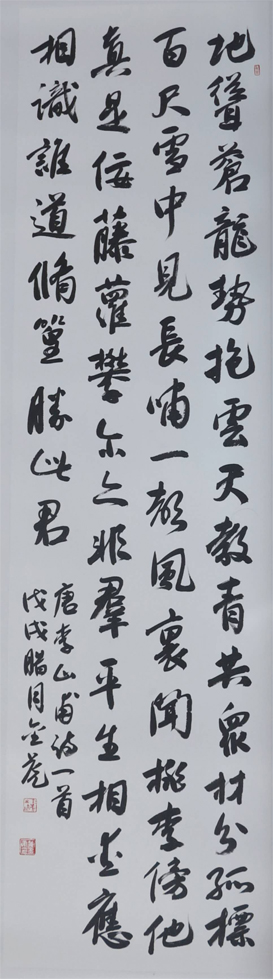 地聳蒼龍勢抱雲天教青共眾材分孤標
百尺雪中見長嘯一聲風裏聞桃李傍他
真是佞藤蘿攀尔亦非羣平生相愛應
相識誰道脩篁勝此君
唐李山甫詩一首
戊戌腊月金